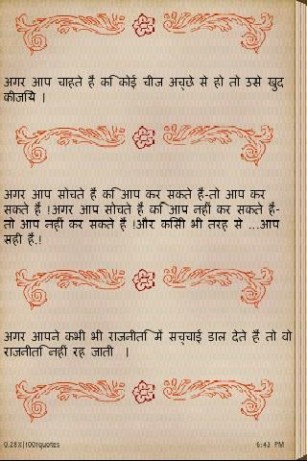 अगर आप चाहते हैं कि कोई चीज अच्छे से हो तो उसे खुद
कीजिये |
अगर आप सोचते हैं कि आप कर सकते हैं-तो आप कर
सकते हैं !अगर आप सोचते हैं कि आप नहीं कर सकते हैं-
तो आप नहीं कर सकते हैं !और किसी भी तरह से ...आप
सही हैं.!
अगर आपने कभी भी राजनीति में सच्चाई डाल देते हैं तो वो
राजनीति नहीं रह जाती |
0.28%|1001quotes
6:43 PM